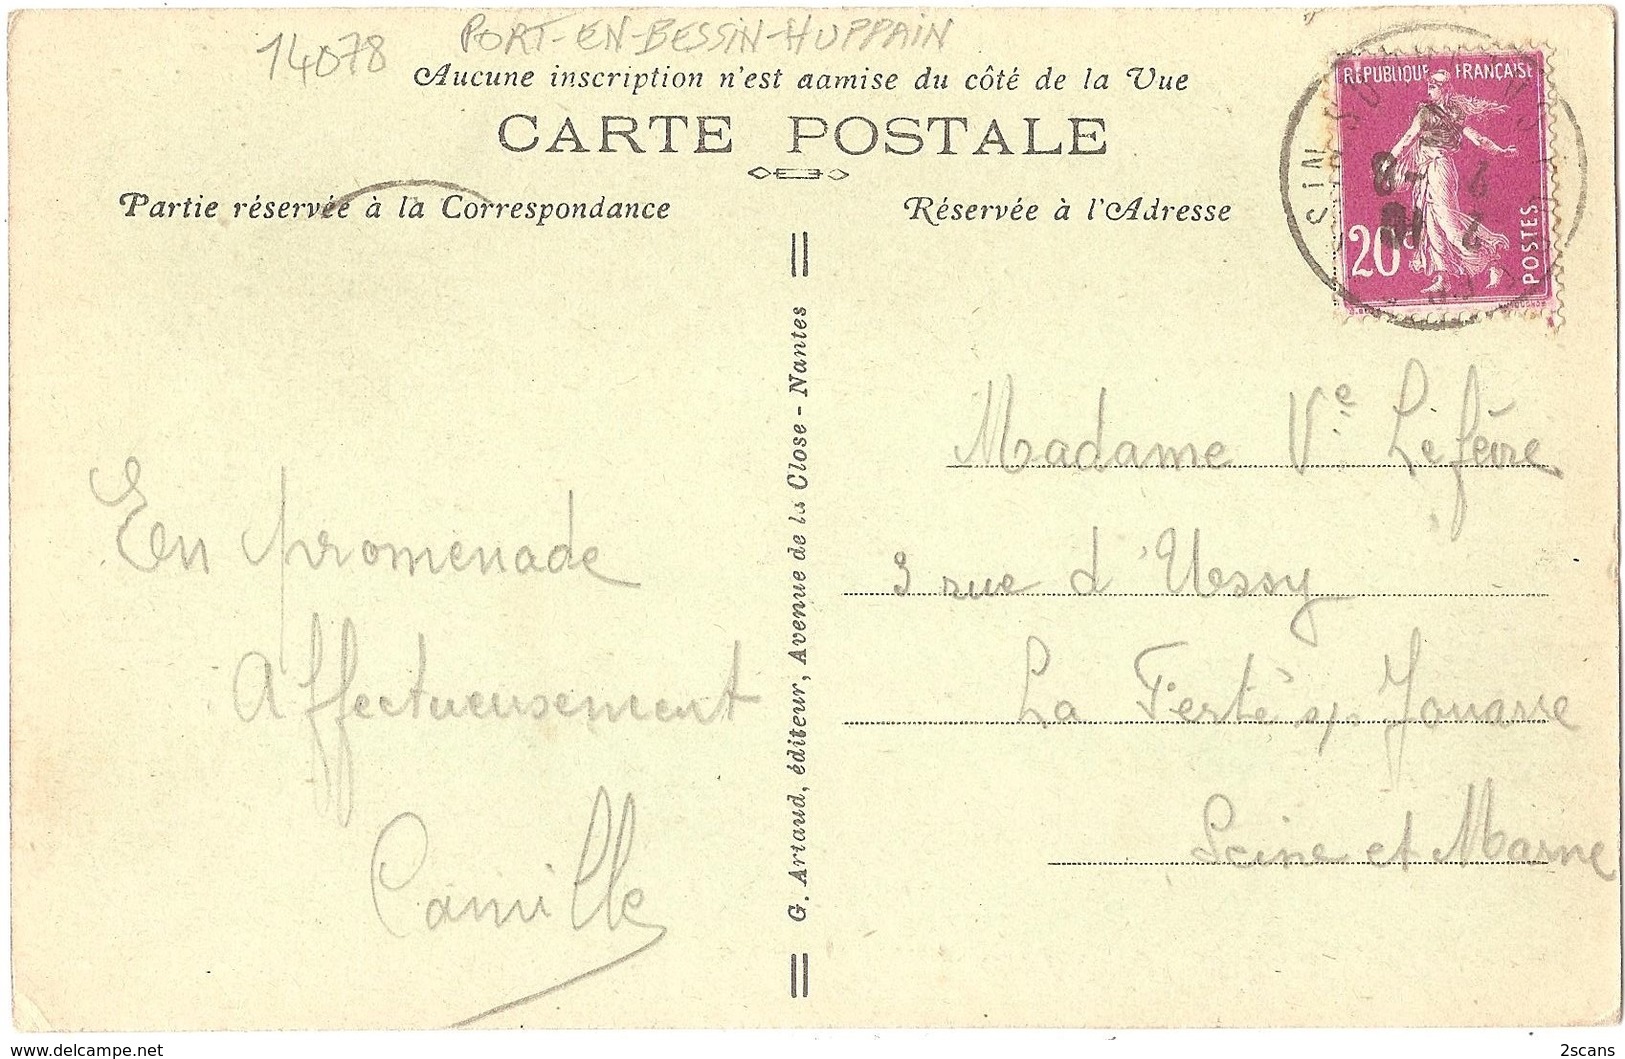 14078 PORT-EN-BESSIN-HUPPAIN
Aucune inscription n'est aamise du côté de la Vue
CARTE POSTALE
Partie réservée à la Correspondance
Réservée à l'Adresse
REPUBLIQUE FRANÇAISE
20c
POSTES
G. Artaud, éditeur, Avenue de la Close - Nantes
En promenade
Affectueusement
Camille
Madame Vᵉ Lefèvre
3 rue d'Ussy
La Ferté s/s Jouarre
Seine et Marne
www.delcampe.net
2scans